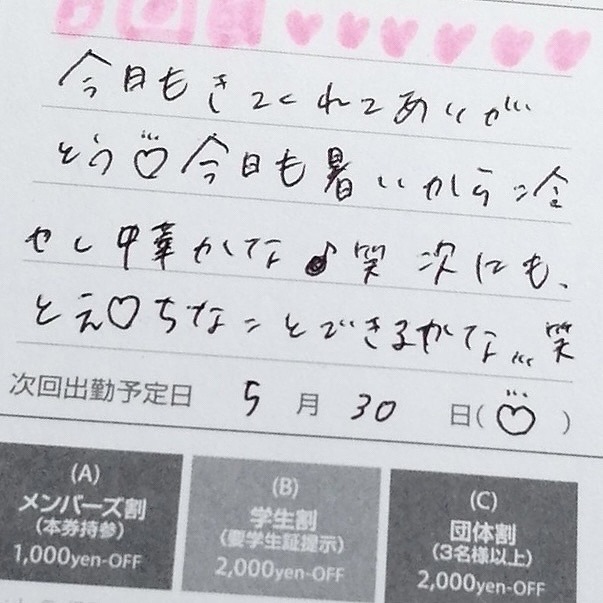 今日もきてくれてありが
とう♡今日も暑いから冷
やし中華かな♪笑 次にも、
とえ♡ちなことできるかな...笑
次回出勤予定日 5月30日(♡)
(A)
メンバーズ割
(本券持参)
1,000yen-OFF
(B)
学生割
(要学生証提示)
2,000yen-OFF
(C)
団体割
(3名様以上)
2,000yen-OFF